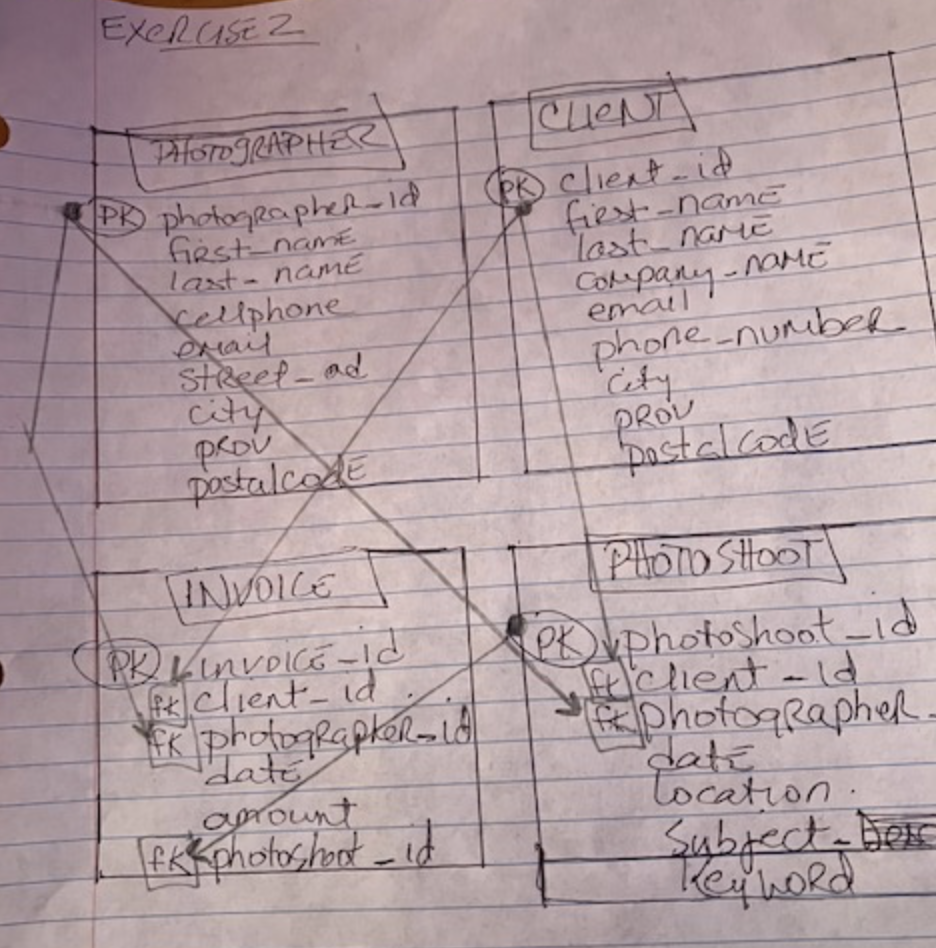 EXERCISE 2
PHOTOGRAPHER
PK photographer_id
first_name
last_name
cellphone
email
Street_ad
city
PROV
postalcodE
CLIENT
PK client_id
first_name
last_name
company_name
email
phone_number
city
PROV
postalcodE
INVOICE
PK invoice_id
fK client_id
fK photographer_id
date
amount
fK photoshoot_id
PHOTOSHOOT
PK photoshoot_id
fK client_id
fK photographer_
date
location
Subject_
Keyword